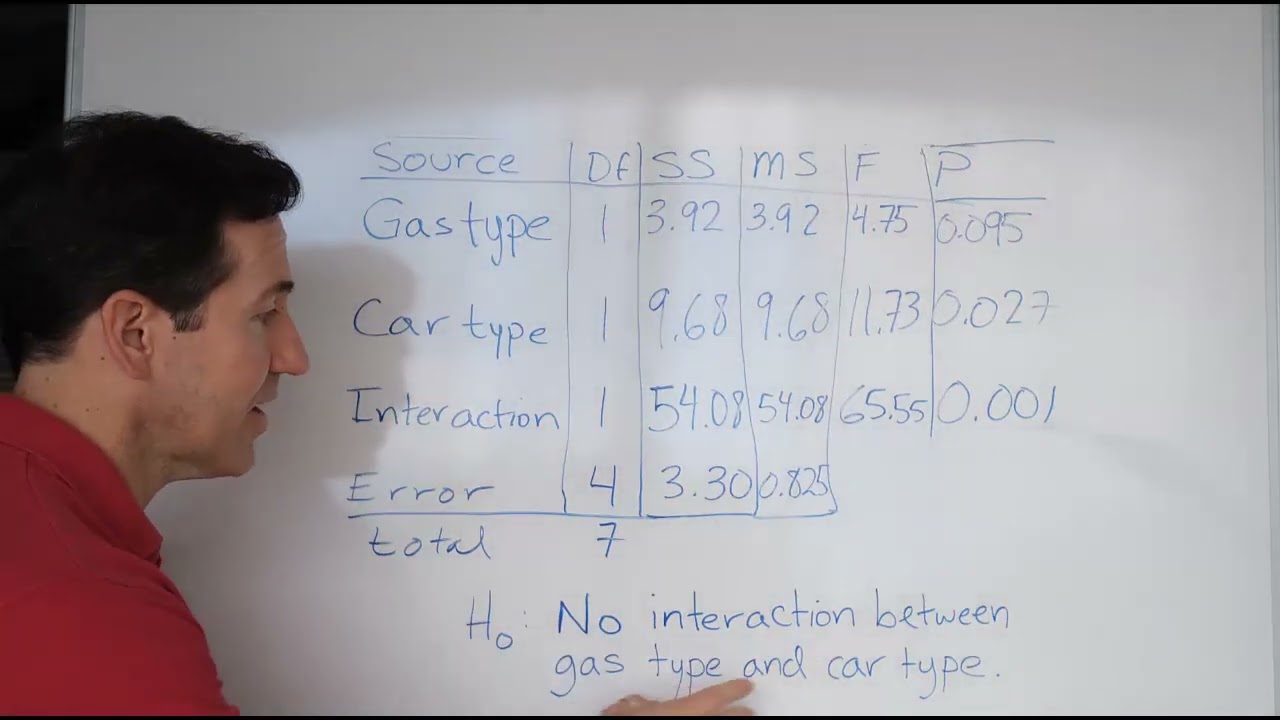 Source Df SS MS F P
Gas type 1 3.92 3.92 4.75 0.095
Car type 1 9.68 9.68 11.73 0.027
Interaction 1 54.08 54.08 65.55 0.001
Error 4 3.30 0.825
total 7
H₀: No interaction between
gas type and car type.